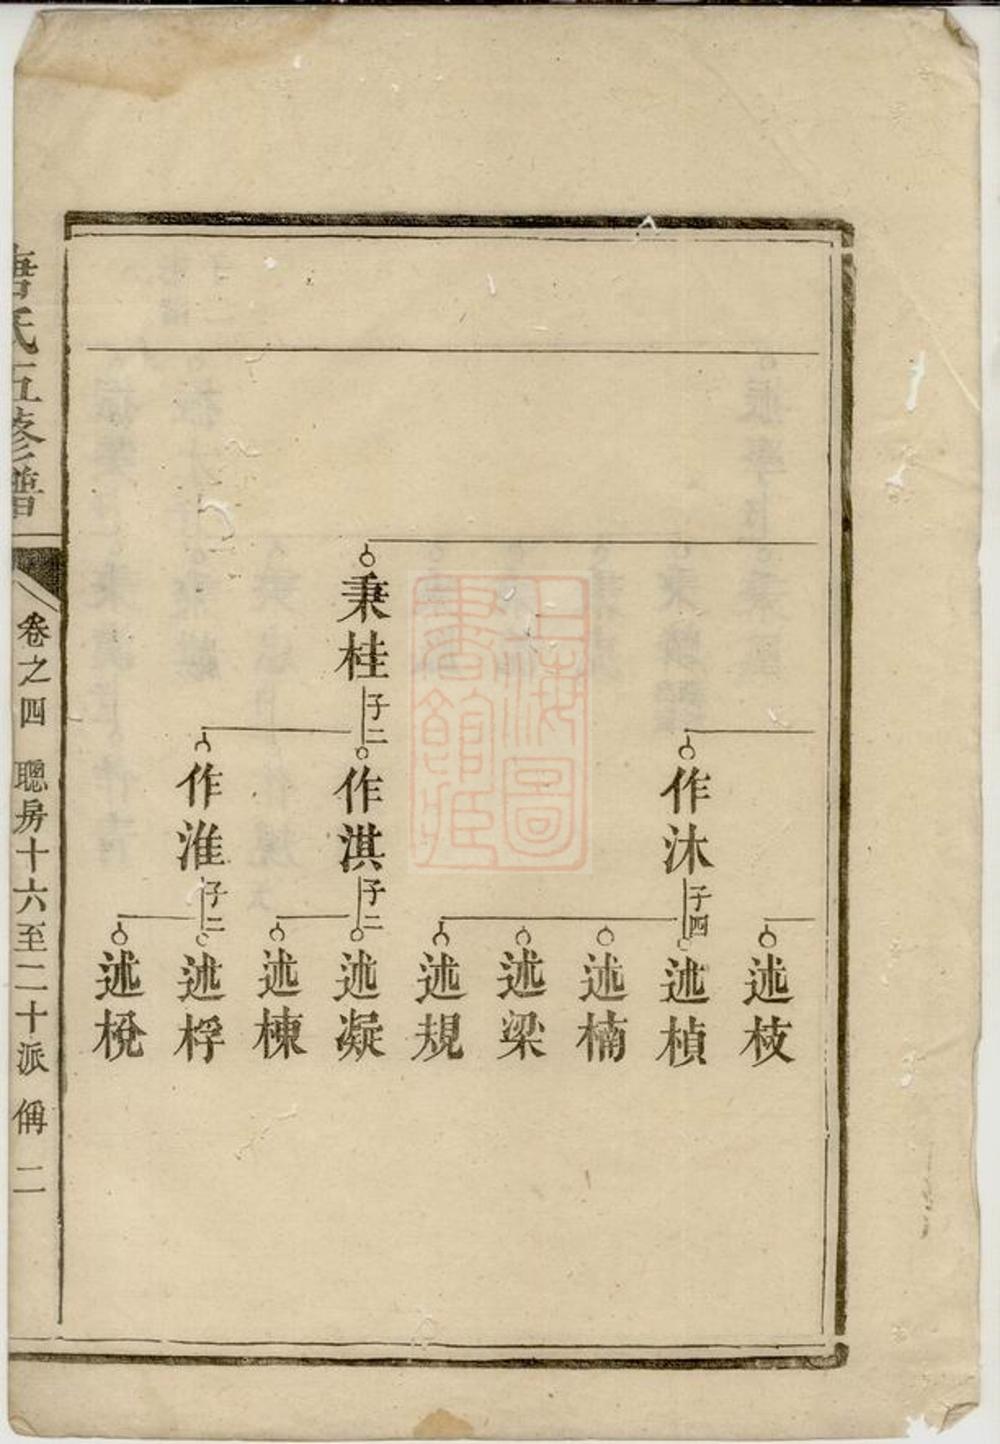 秉桂
子二
作沐
子四
作淇
子二
作淮
子二
述枝
述楨
述楠
述梁
述規
述凝
述棟
述桴
述棁
唐氏五修譜
卷之四
聰房十六至二十派
備
二
上海圖書館藏